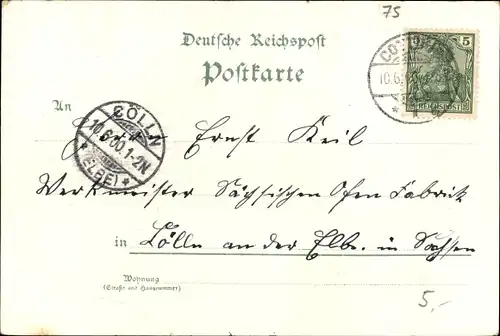 75
Deutsche Reichspost
Postkarte
5
10.6.
REICHSPOST
An
CÖLLN
10.6.00.1-2N
(ELBE)
Herrn Ernst Keil
Werkmeister Sächsischen Ofen Fabrick
in Cölln an der Elbe. in Sachsen
Wohnung
(Straße und Hausnummer)
5,-